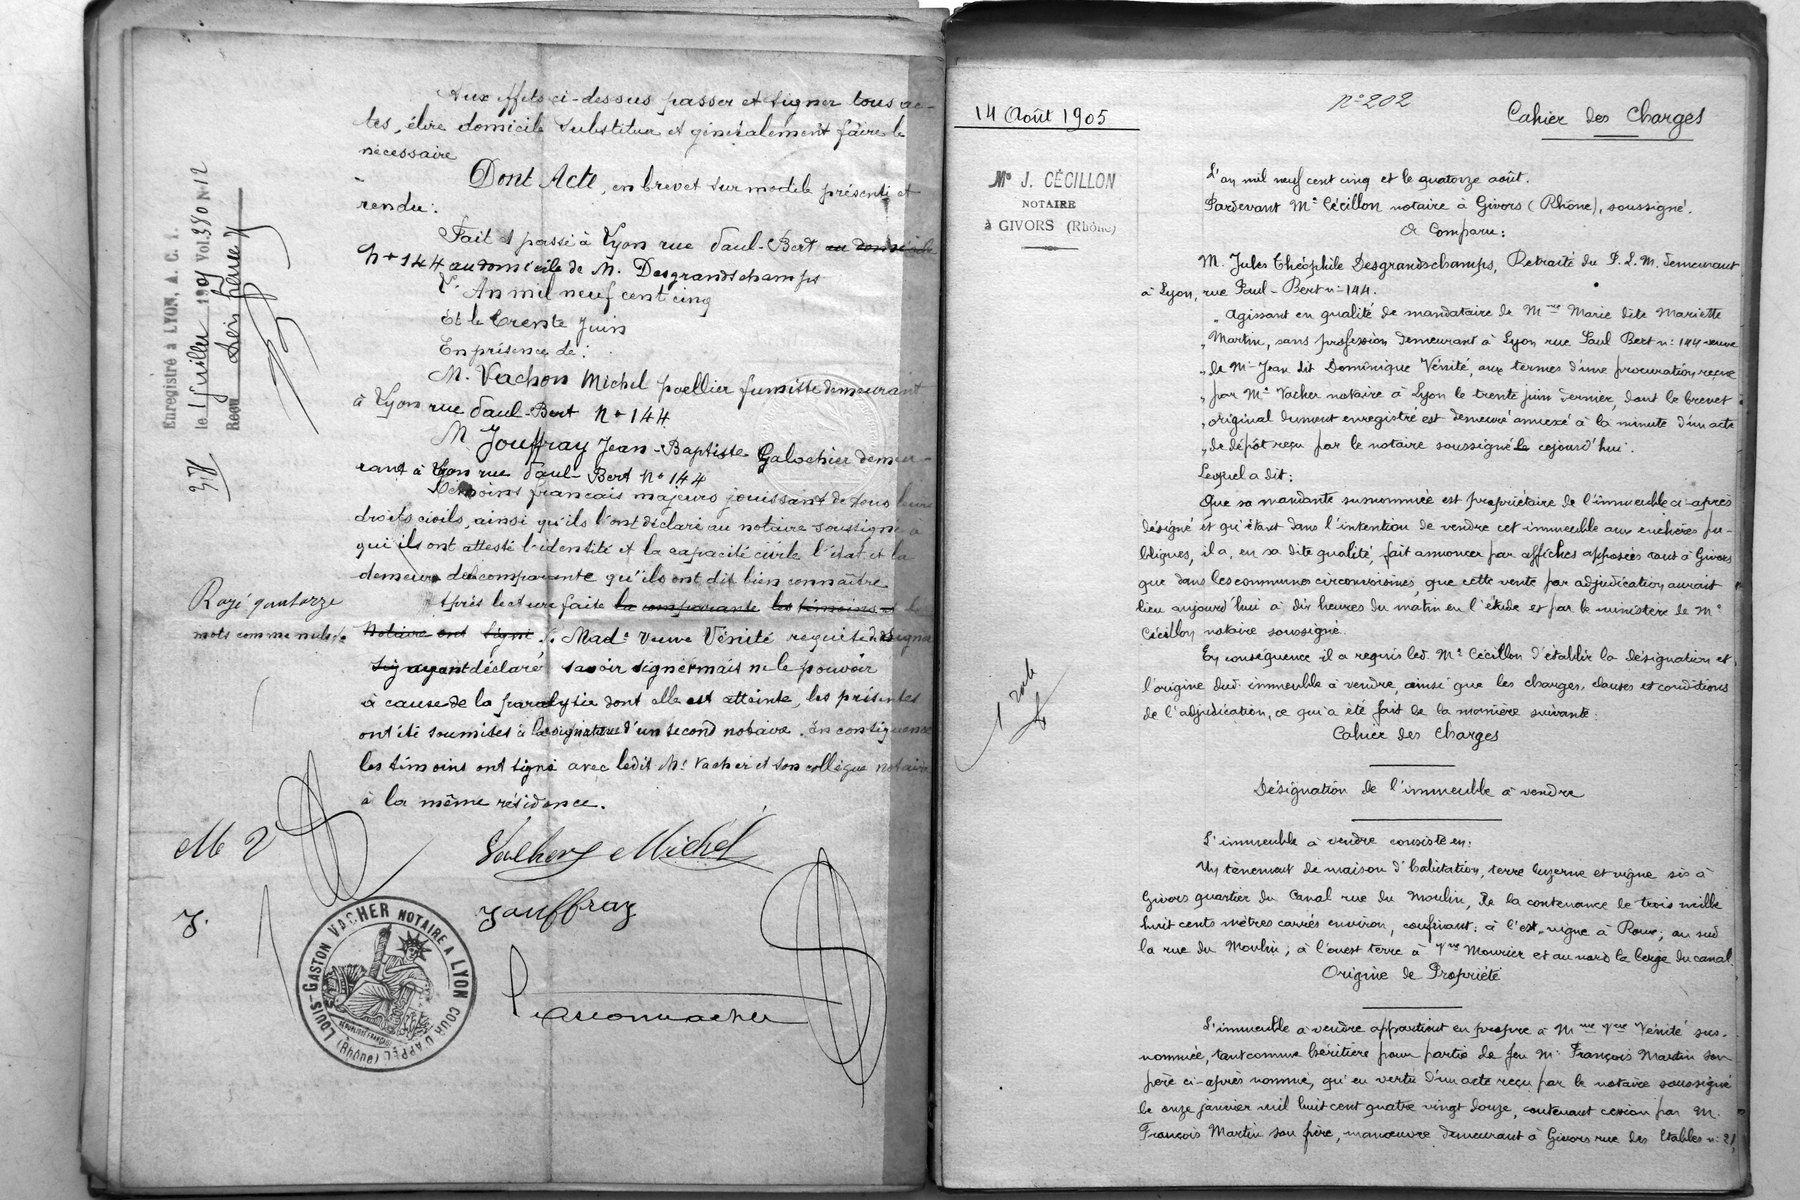 Aux effets ci-dessus passer et signer tous ac-
tes, élire domicile substituer et généralement faire le
nécessaire
Dont Acte, en brevet sur modèle présenté et
rendu.
Fait & passé à Lyon rue Paul-Bert au domicile
No 144 au domicile de M. Desgrandschamps
L'An mil neuf cent cinq
Et le trente Juin
En présence de:
M. Vachon Michel poellier fumiste demeurant
à Lyon rue Paul-Bert No 144
M Jouffray Jean-Baptiste Galochier demeu-
rant à Lyon rue Paul-Bert No 144
Témoins français majeurs jouissant de tous leurs
droits civils, ainsi qu'ils l'ont déclaré au notaire soussigné à
qui ils ont attesté l'identité et la capacité civile l'état et la
demeure de la comparante qu'ils ont dit bien connaître
Après lecture faite la comparante les témoins et le
Notaire ont signé. Made veuve Vénité requise de signer
ayant déclaré savoir signer mais ne le pouvoir
à cause de la paralysie dont elle est atteinte, les présentes
ont été soumises à la signature d'un second notaire. En conséquence
les témoins ont signé avec ledit Me Vacher et son collègue notaire
à la même résidence.
Enregistré à LYON, A. C. 1.
le Juillet 190 Vol. 580 No 12
Reçu
Rayé quatorze
mots comme nuls
M V
Michel
J.
Jouffray
LOUIS-GASTON VACHER NOTAIRE A LYON COUR D'APPEL
(Rhône)
14 Août 1905
No 202
Cahier des Charges
Me J. CÉCILLON
NOTAIRE
à GIVORS (Rhône)
L'an mil neuf cent cinq et le quatorze août.
Pardevant Me Cécillon notaire à Givors (Rhône), soussigné.
A Comparu:
M. Jules Théophile Desgrandschamps, Retraité du P. L. M. demeurant
à Lyon, rue Paul-Bert no 144.
„ Agissant en qualité de mandataire de Mme Marie dite Mariette
„ Martin, sans profession demeurant à Lyon rue Paul Bert no 144 veuve
„ de Mr Jean dit Dominique Vénité, aux termes d'une procuration reçue
„ par Me Vacher notaire à Lyon le trente juin dernier, dont le brevet
„ original dument enregistré est demeuré annexé à la minute d'un acte
„ de dépôt reçu par le notaire soussigné le cejourd'hui.
Lequel a dit:
Que sa mandante susnommée est propriétaire de l'immeuble ci-après
désigné et qu'étant dans l'intention de vendre cet immeuble aux enchères pu-
bliques, il a, en sa dite qualité, fait annoncer par affiches apposées tant à Givors
que dans les communes circonvoisines, que cette vente par adjudication aurait
lieu aujourd'hui à dix heures du matin en l'étude et par le ministère de Me
Cécillon notaire soussigné.
En conséquence il a requis led. Me Cécillon d'établir la désignation et
l'origine dud. immeuble à vendre, ainsi que les charges, clauses et conditions
de l'adjudication, ce qui a été fait de la manière suivante:
Cahier des Charges
Désignation de l'immeuble à vendre
L'immeuble à vendre consiste en:
Un tènement de maison d'habitation, terre luzerne et vigne sis à
Givors quartier du Canal rue du Moulin, de la contenance de trois mille
huit cents mètres carrés environ, confinant: à l'est, vigne à Roux; au sud
la rue du Moulin; à l'ouest terre à Vve Mourier et au nord la berge du canal.
Origine de Propriété
L'immeuble à vendre appartient en propre à Mme Vve Vénité sus-
nommée, tant comme héritière pour partie de feu Mr François Martin son
père ci-après nommé, qu'en vertu d'un acte reçu par le notaire soussigné
le onze janvier mil huit cent quatre vingt douze, contenant cession par M.
François Martin son frère, manœuvre demeurant à Givors rue des Etables no 21,